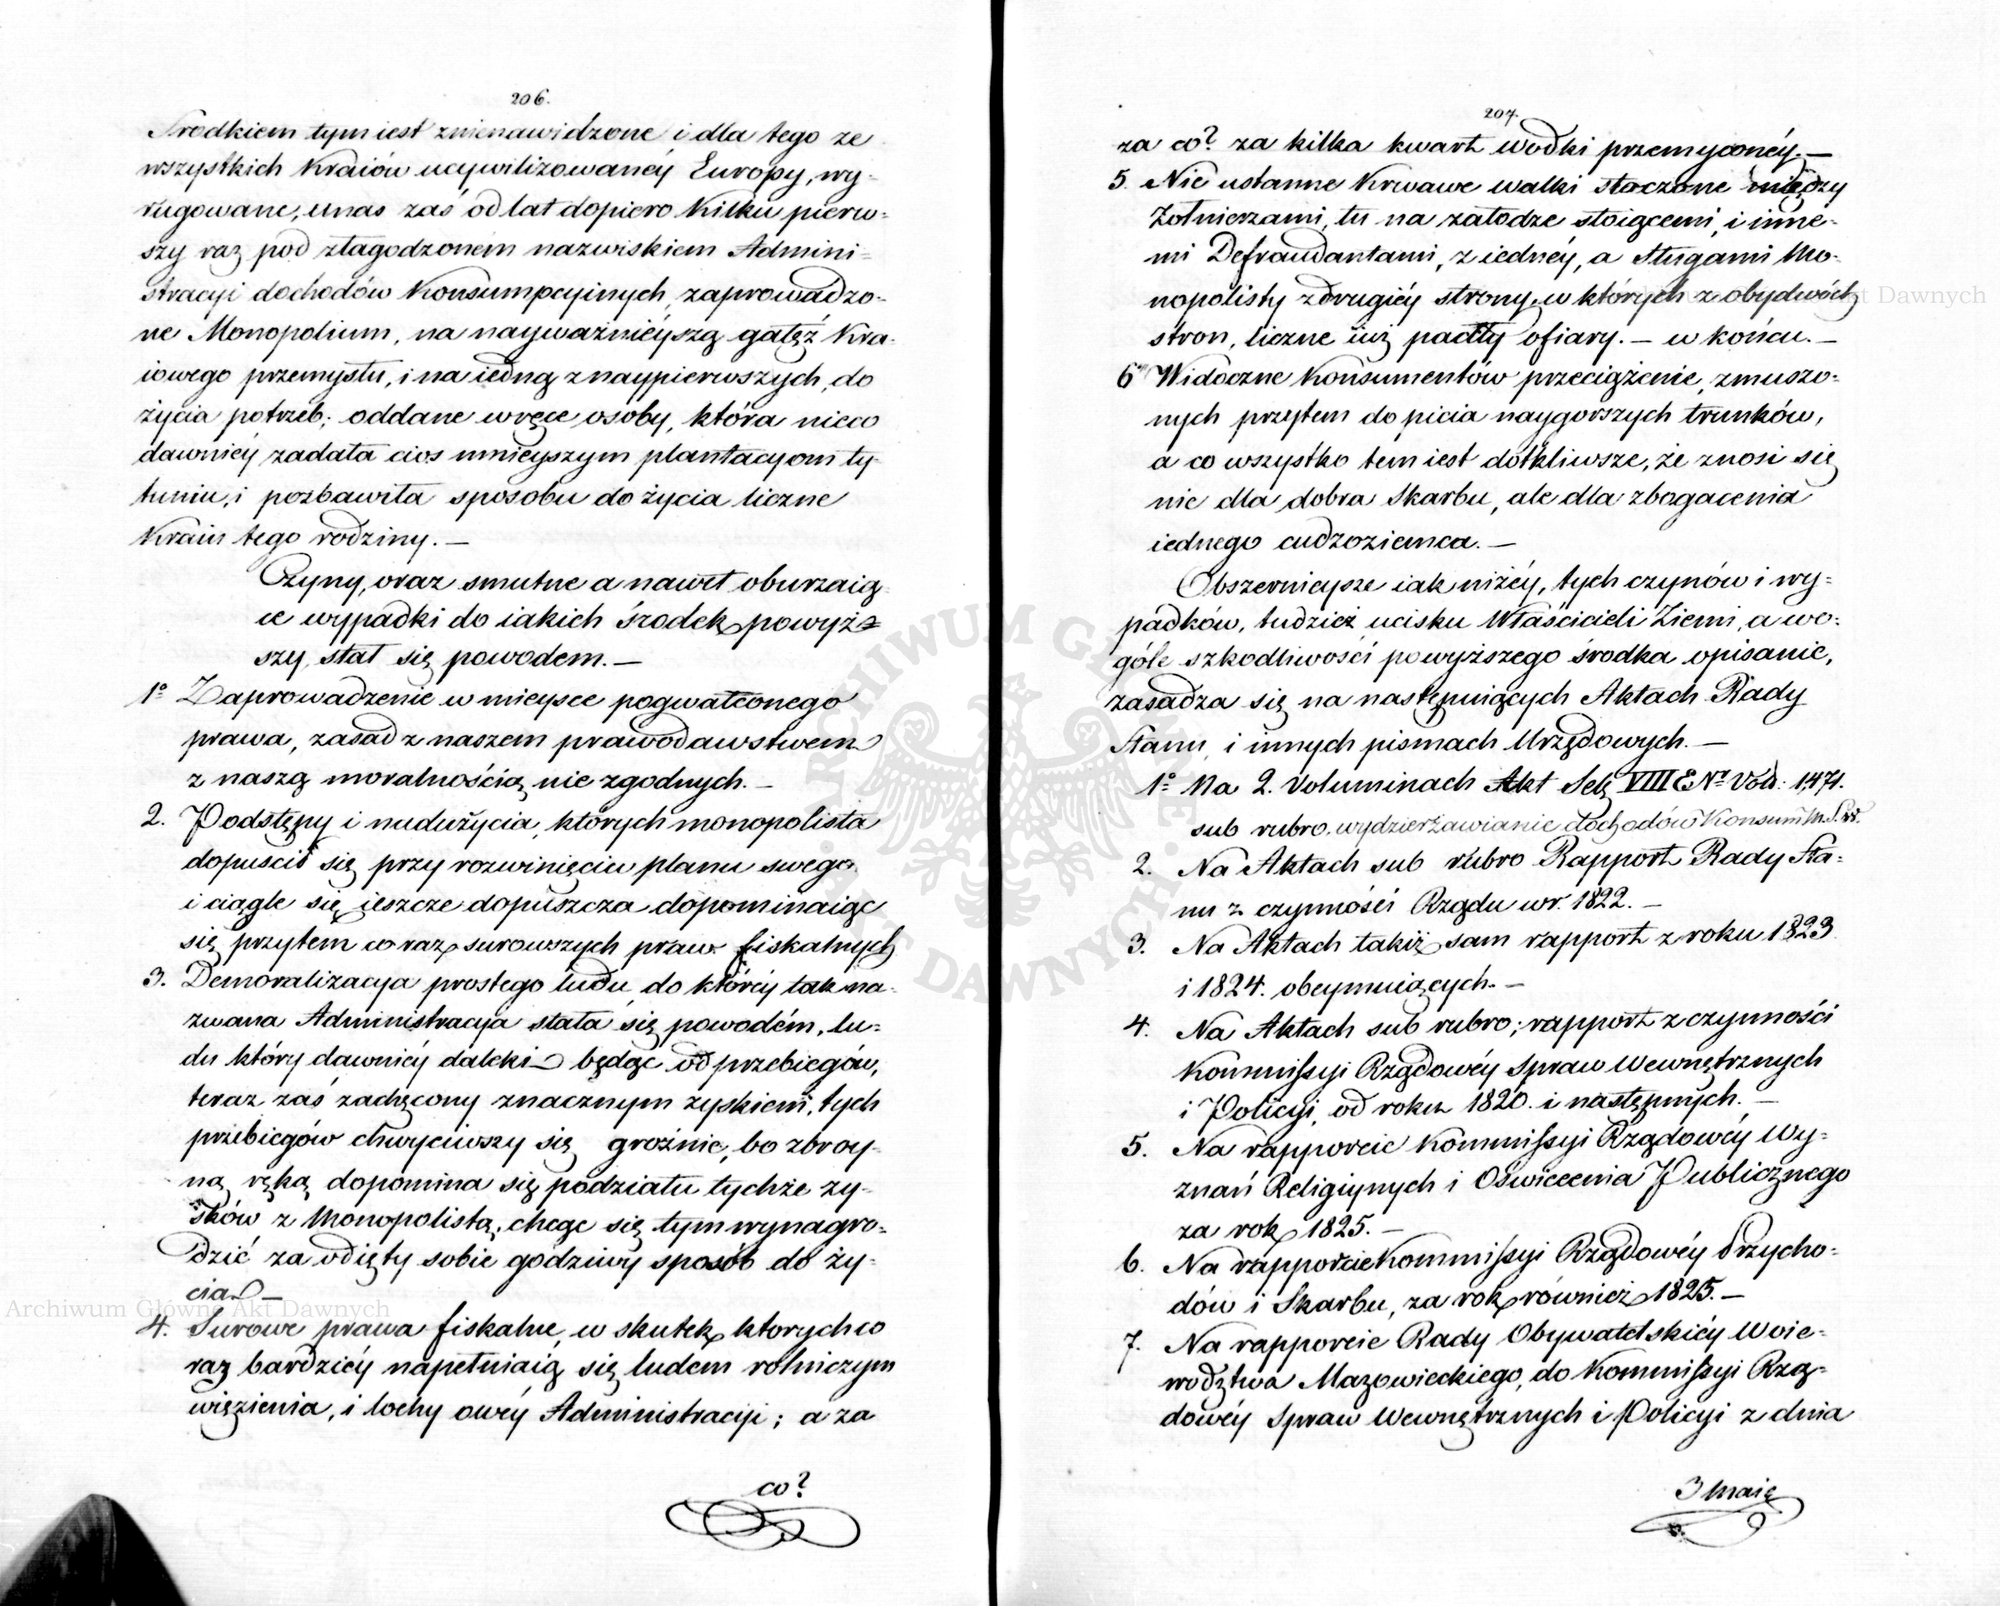 206.
Srodkiem tym iest znienawidzone i dla tego ze
wszystkich Kraiów ucywilizowanéy Europy, wy-
rugowane, u nas zaś od lat dopiero kilku pierw-
szy raz pod złagodzoném nazwiskiem Admini-
stracyi dochodów Konsumpcyinych, zaprowadzo-
ne Monopolium, na nayważnieyszą gałęź Kra-
iowego przemysłu, i na iedną z naypierwszych do
życia potrzeb; oddane w ręce osoby, która nieco
dawniéy zadała cios mnieyszym plantacyom ty-
tuniu, i pozbawiła sposobu do życia liczne
Kraiu tego rodziny. —
Czyny, oraz smutne a nawet oburzaią-
ce wypadki do iakich środek powyż-
szy stał się powodem. —
1º Zaprowadzenie w mieysce pogwałconego
prawa, zasad z naszem prawodawstwem
z naszą moralnością nie zgodnych. —
2. Podstępy i nadużycia, których monopolista
dopuścił się przy rozwinięciu planu swego
i ciągle się ieszcze dopuszcza dopominaiąc
się przytem coraz surowszych praw fiskalnych
3. Demoralizacya prostego ludu do któréy tak na-
zwana Administracya stała się powodém, lu-
du który dawniéy daleki będąc od przebiegów,
teraz zaś zachęcony znacznym zyskiem, tych
przebiegów chwyciwszy się groźnie, bo zbroy-
ną ręką dopomina się podziału tychże zy-
sków z Monopolistą, chcąc się tym wynagro-
dzić za odięty sobie godziwy sposób do ży-
cia. —
4. Surowe prawa fiskalne, w skutek ktorych co
raz bardziéy napełniaią się ludem rolniczym
więzienia, i lochy owéy Administracyi; a za
co?
207.
za co? za kilka kwart wodki przemyconéy. —
5. Nie ustanne krwawe walki staczane między
Żołnierzami, tu na załodze stoiącemi, i inne-
mi Defraudantami, z iednéy, a Sługami Mo-
nopolisty z drugiéy strony, w których z obydwóch
stron, liczne iuż padły ofiary. — w końcu. —
6º Widoczne Konsumentów przeciążenie, zmuszo-
nych przytem do picia naygorszych trunków,
a co wszystko tem iest dotkliwsze, że znosi się
nie dla dobra Skarbu, ale dla zbogacenia
iednego cudzoziemca. —
Obszernieysze iak niżéy, tych czynów i wy-
padków, tudzież ucisku Właścicieli Ziemi, a wo-
góle szkodliwości powyższego środka opisanie,
zasadza się na następuiących Aktach Rady
Stanu, i innych pismach Urzędowych. —
1º Na 2. Voluminach Akt Sek VIII E Nr Vod: 1,471.
sub rubro. wydzierżawianie dochodów Konsum M. S. W.
2. Na Aktach sub rubro Rapport Rady Sta-
nu z czynności Rządu w r. 1822. —
3. Na Aktach takiż sam rapport z roku 1823
i 1824. obeymuiących. —
4. Na Aktach sub rubro; rapport z czynności
Kommissyi Rządowéy Spraw Wewnętrznych
i Policyi, od roku 1820. i następnych. —
5. Na rapporcie Kommissyi Rządowéy Wy-
znań Religiynych i Oświecenia Publicznego
za rok 1825. —
6. Na rapporcie Kommissyi Rządowéy Przycho-
dów i Skarbu, za rok również 1825. —
7. Na rapporcie Rady Obywatelskiéy Woie-
wodztwa Mazowieckiego, do Kommissyi Rzą-
dowéy Spraw Wewnętrznych i Policyi z dnia
3 Maia
Archiwum Główne Akt Dawnych